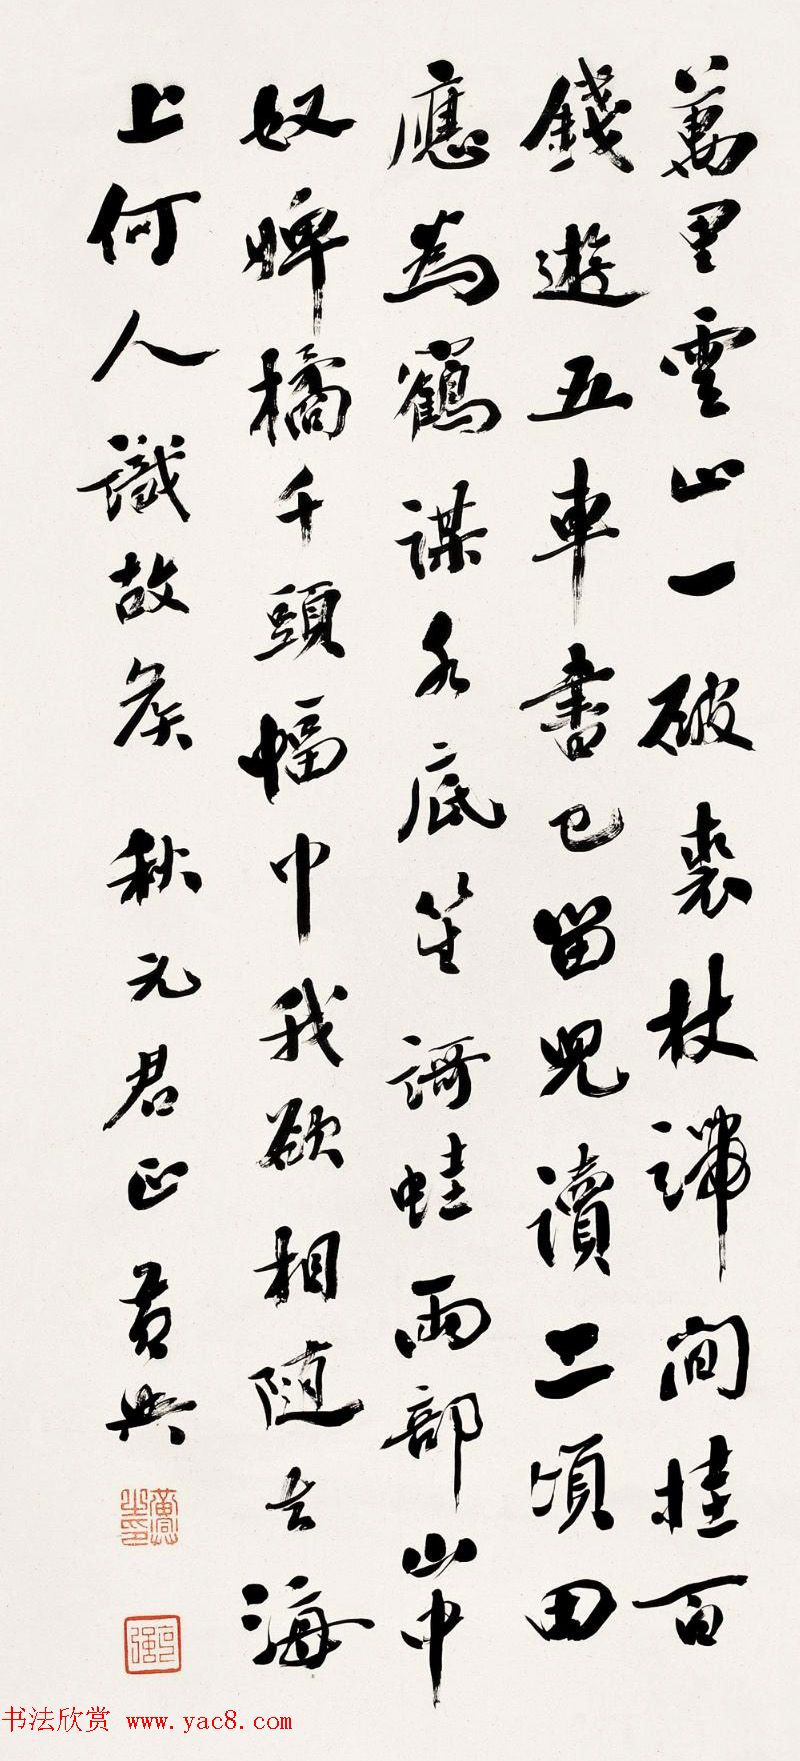 萬里雲山一破裘杖端間挂百
錢遊五車書已留兒讀二頃田
應為鶴謀水底笙謌蛙兩部山中
奴婢橘千頭幅巾我欲相隨去海
上何人識故矦 秋元君正 黃興
黃興之印
克強
书法欣赏 www.yac8.com